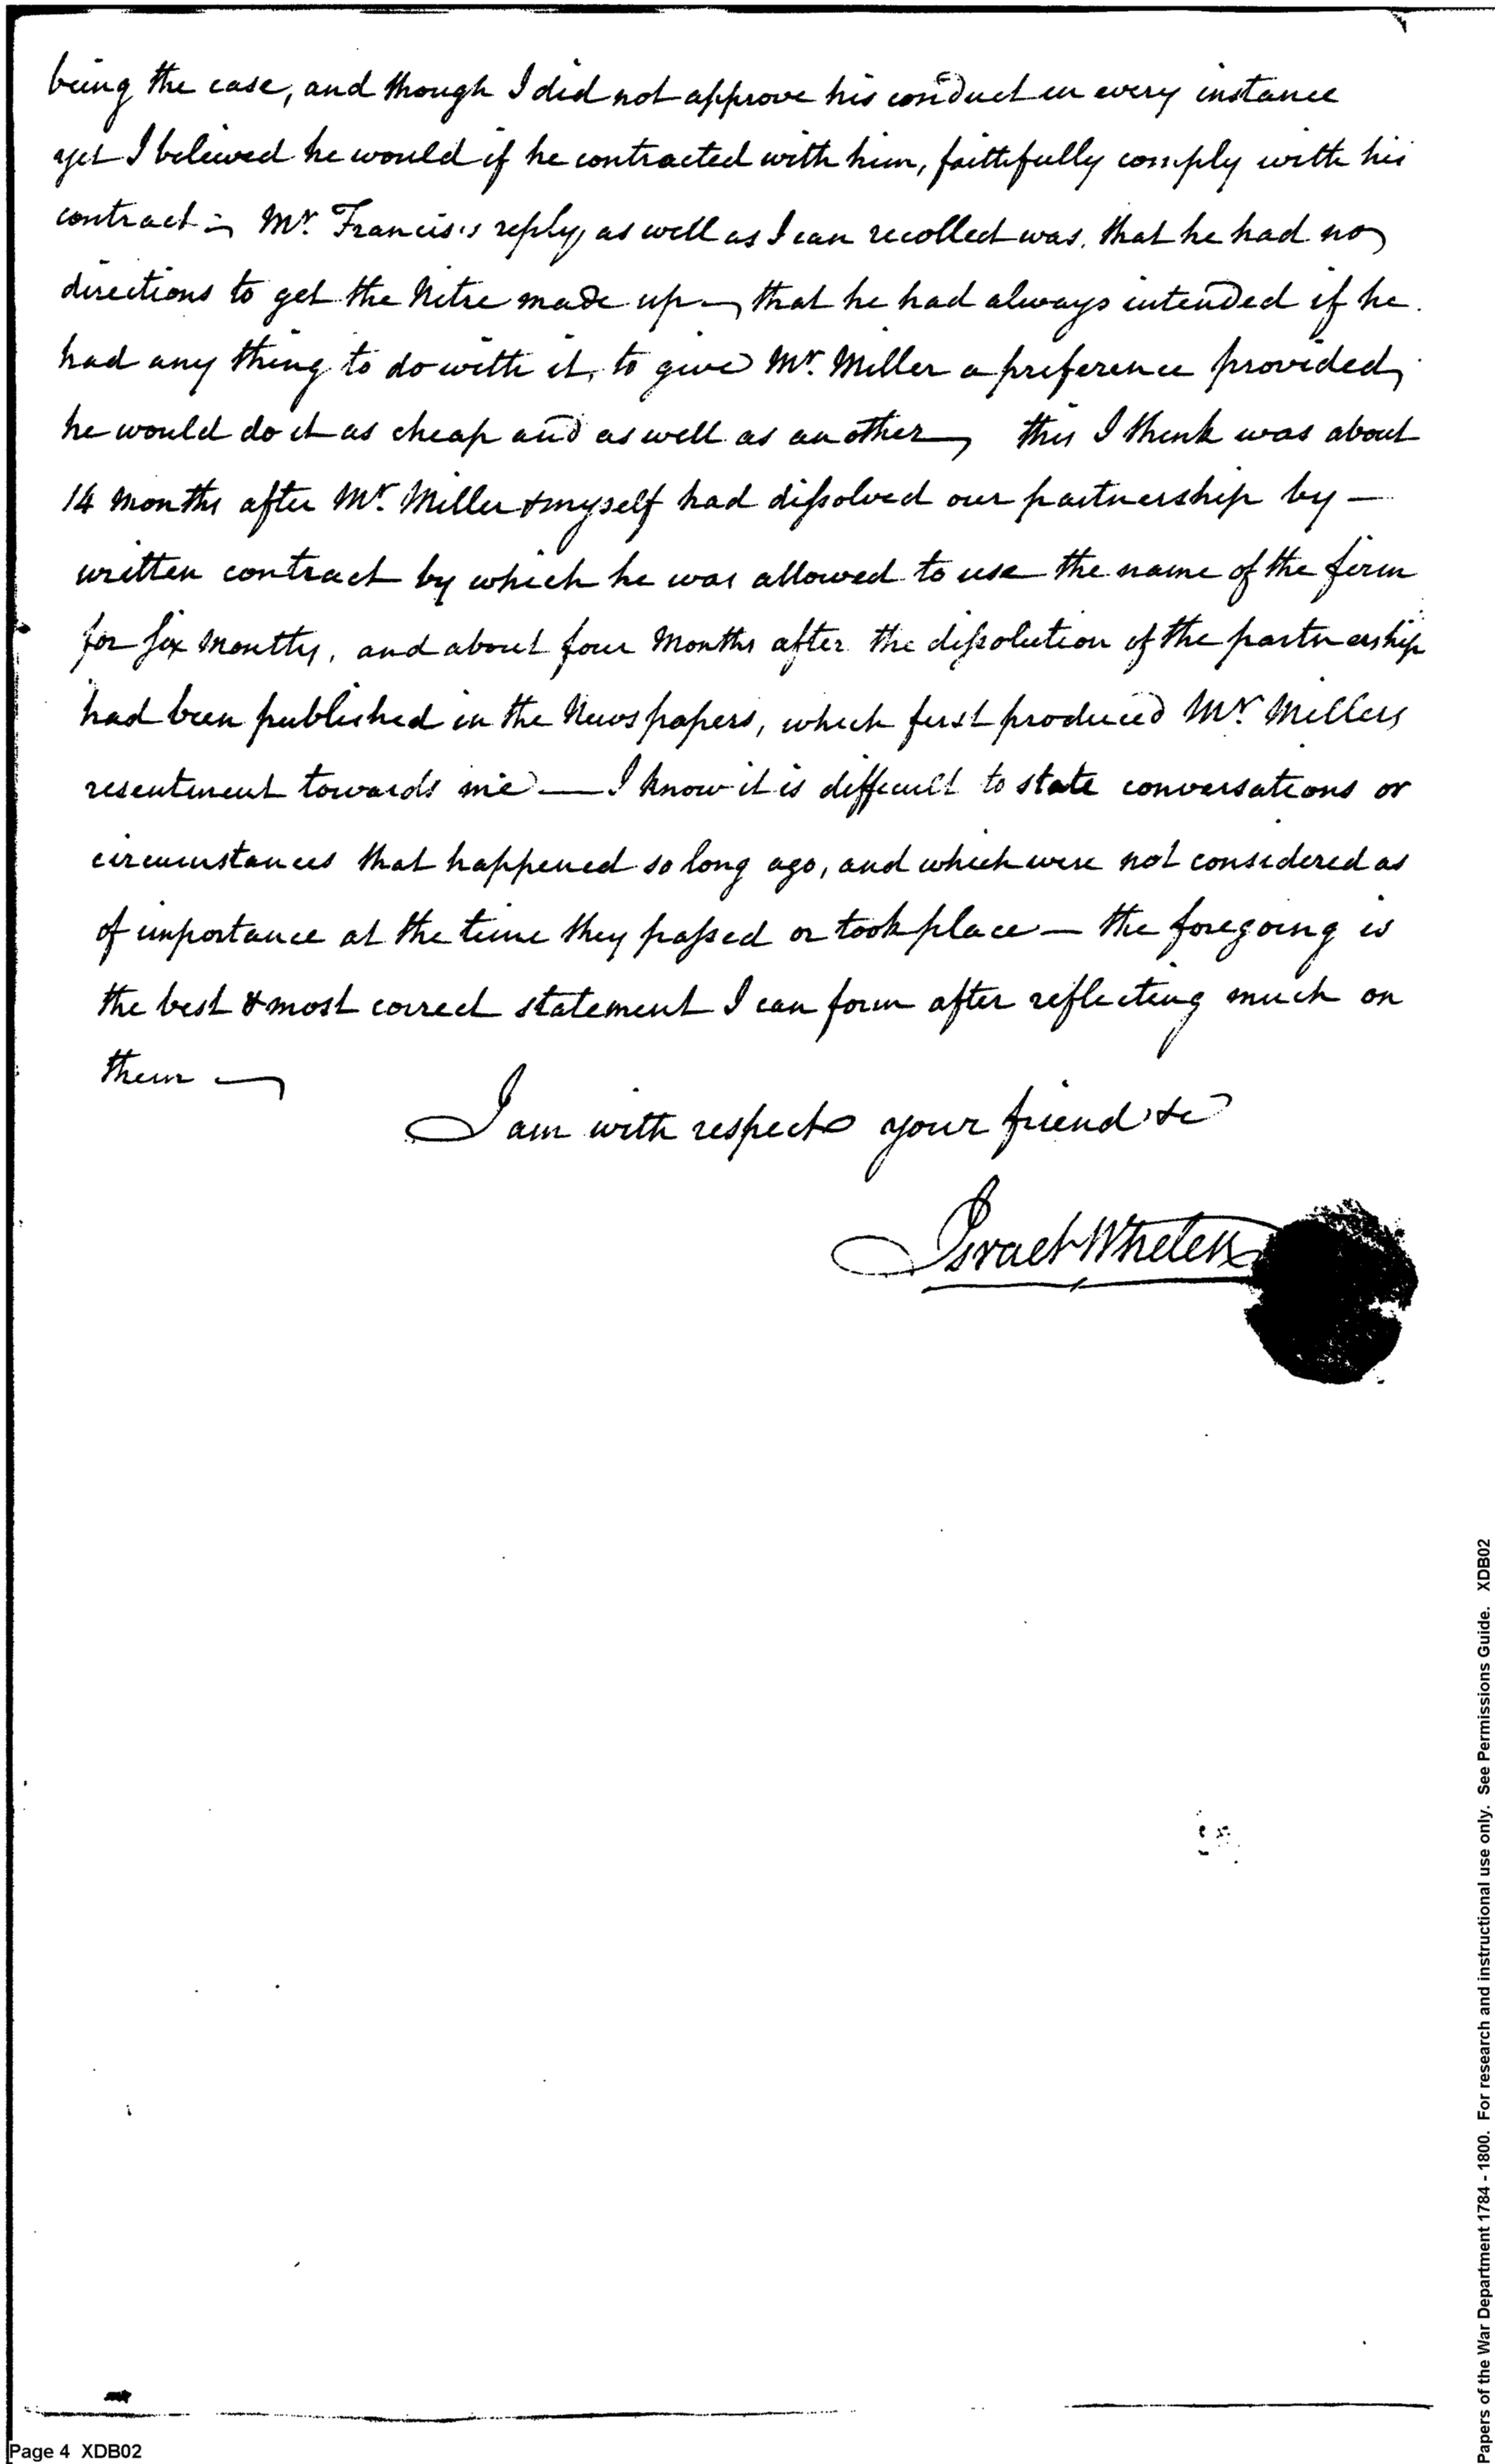 being the case, and though I did not approve his conduct in every instance
yet I beleived he would if he contracted with him, faithfully comply with his
contract — Mr. Francis's reply, as well as I can recollect was, that he had no
directions to get the Nitre made up — that he had always intended if he
had any thing to do with it, to give Mr. Miller a preference provided,
he would do it as cheap and as well as another — this I think was about
14 Months after Mr. Miller & myself had dissolved our partnership by —
written contract by which he was allowed to use the name of the firm
for six Months, and about four Months after the dissolution of the partnership
had been published in the News papers, which first produced Mr. Millers
resentment towards me — I know it is difficult to state conversations or
circumstances that happened so long ago, and which were not considered as
of importance at the time they passed or took place — the foregoing is
the best & most correct statement I can form after reflecting much on
them —
I am with respect your friend &c
Israel Whelen
Page 4 XDB02
Papers of the War Department 1784 - 1800. For research and instructional use only. See Permissions Guide. XDB02